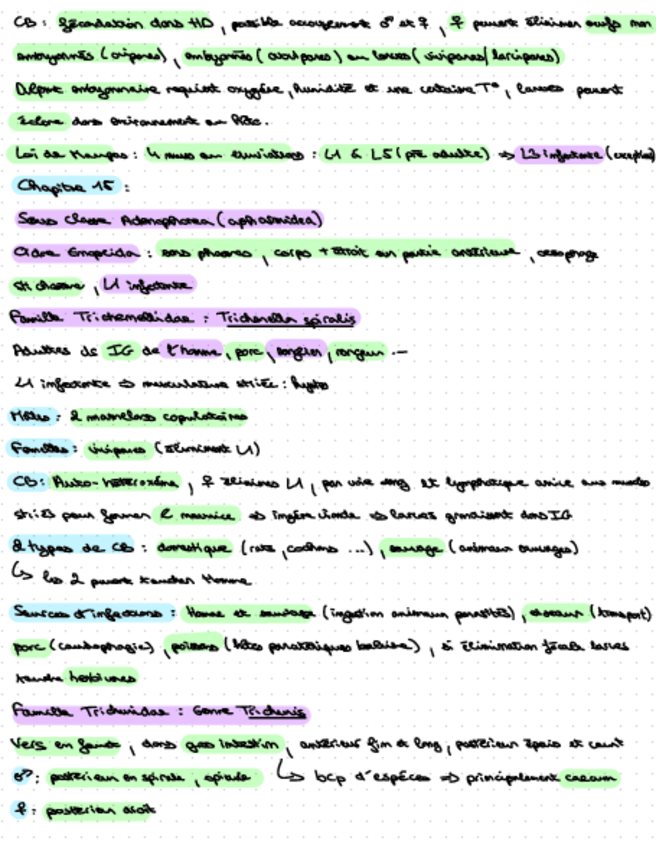 CB : fécondation dans HD, possible accouplement ♂ et ♀, ♀ peuvent éliminer oeufs non
embryonnés (ovipares), embryonnés (ovovipares) ou larves (vivipares/larvipares)
Dévpmt embryonnaire requiert oxygène, humidité et une certaine T°, larves peuvent
éclore dans environnement ou hôte.
Loi de Maupas : 4 mues : L1 à L5 (pré adulte) ⇒ L3 infestante (exception)
Chapitre 15 :
Sous Classe Adenophorea (aphasmidea)
Ordre Enoplida : sans phasmes, corps + étroit en partie antérieure, oesophage
, L1 infestante
Famille Trichinellidae : Trichinella spiralis
Adultes ds IG de l'homme, porc, sanglier, rongeur ...
L1 infestante ⇒ musculature striée :
Mâles : 2 mamelons copulatoires
Femelles : vivipares (éliminent L1)
CB : Auto-hétéroxène, ♀ élimines L1, par voie sang. et lymphatique arrive aux muscles
striés pour former ⇒ ingère viande ⇒ larves grandissent dans IG
2 types de CB : domestique (rats, cochons ...), sauvage (animaux sauvages)
↳ les 2 peuvent toucher Homme
Sources d'infections : Homme et sauvage (ingestion animaux parasités), (transport)
porc (caudophagie), poissons (hôtes paraténiques), si élimination fécale larves
touche herbivores
Famille Trichuridae : Genre Trichuris
Vers en fouet, dans gros intestin, antérieur fin et long, postérieur épais et court
↳ bcp d'espèces ⇒ principalement caecum
♂ : postérieur en spirale, spicule
♀ : postérieur droit